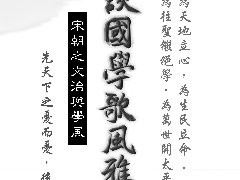 為天地立心，為生民立命，
為往聖繼絕學，為萬世開太平
談國學歌風雅
宋朝之文治與學風
先天下之憂而憂，後